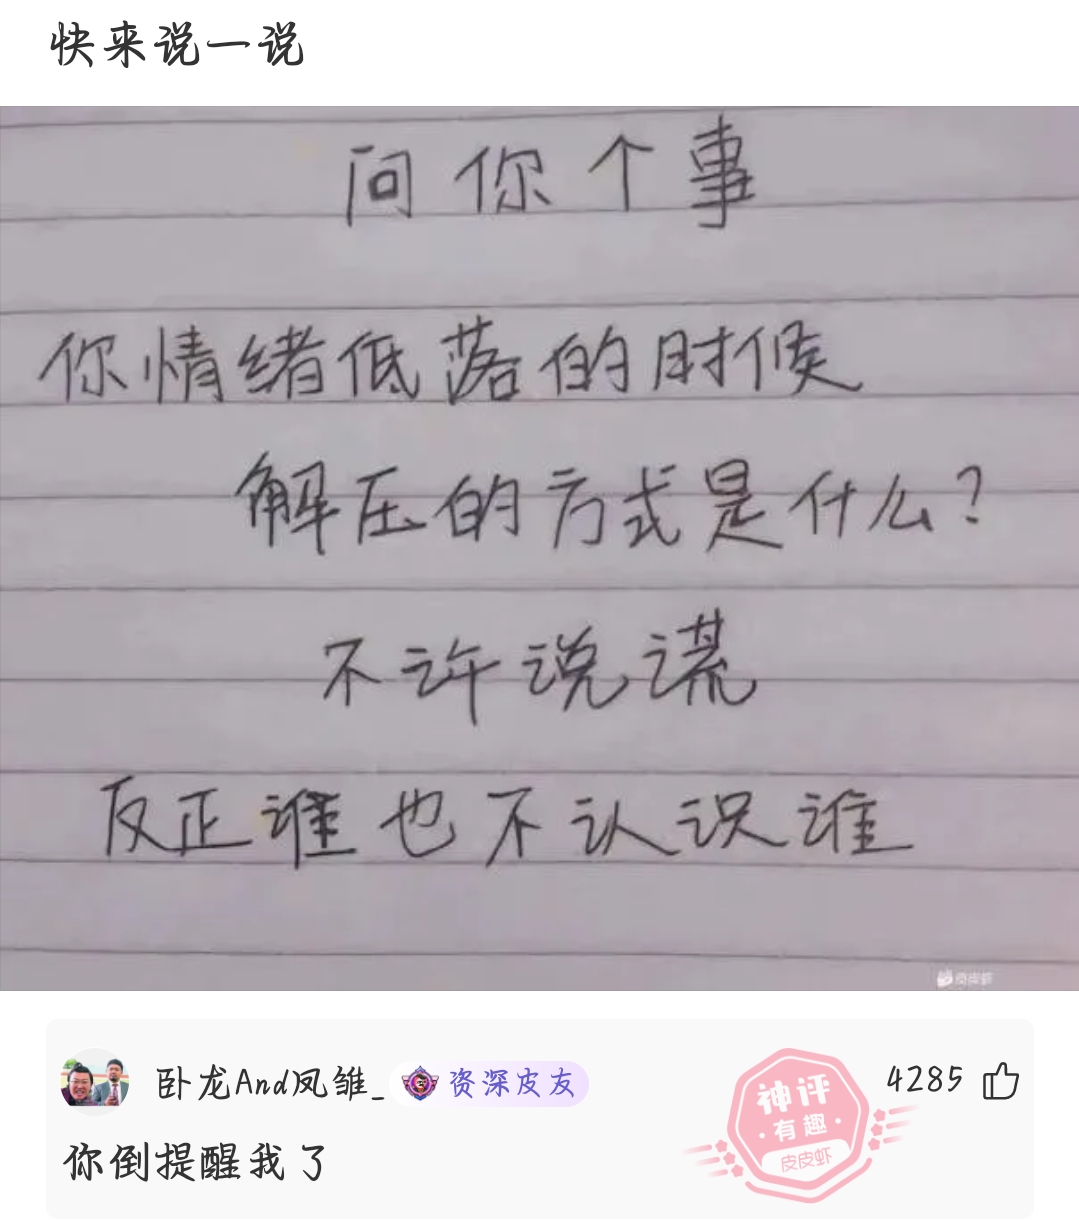 快来说一说
问你个事
你情绪低落的时候
解压的方式是什么?
不许说谎
反正谁也不认识谁
皮皮虾
卧龙And凤雏_ 资深皮友
4285
你倒提醒我了
神评
·有趣·
皮皮虾